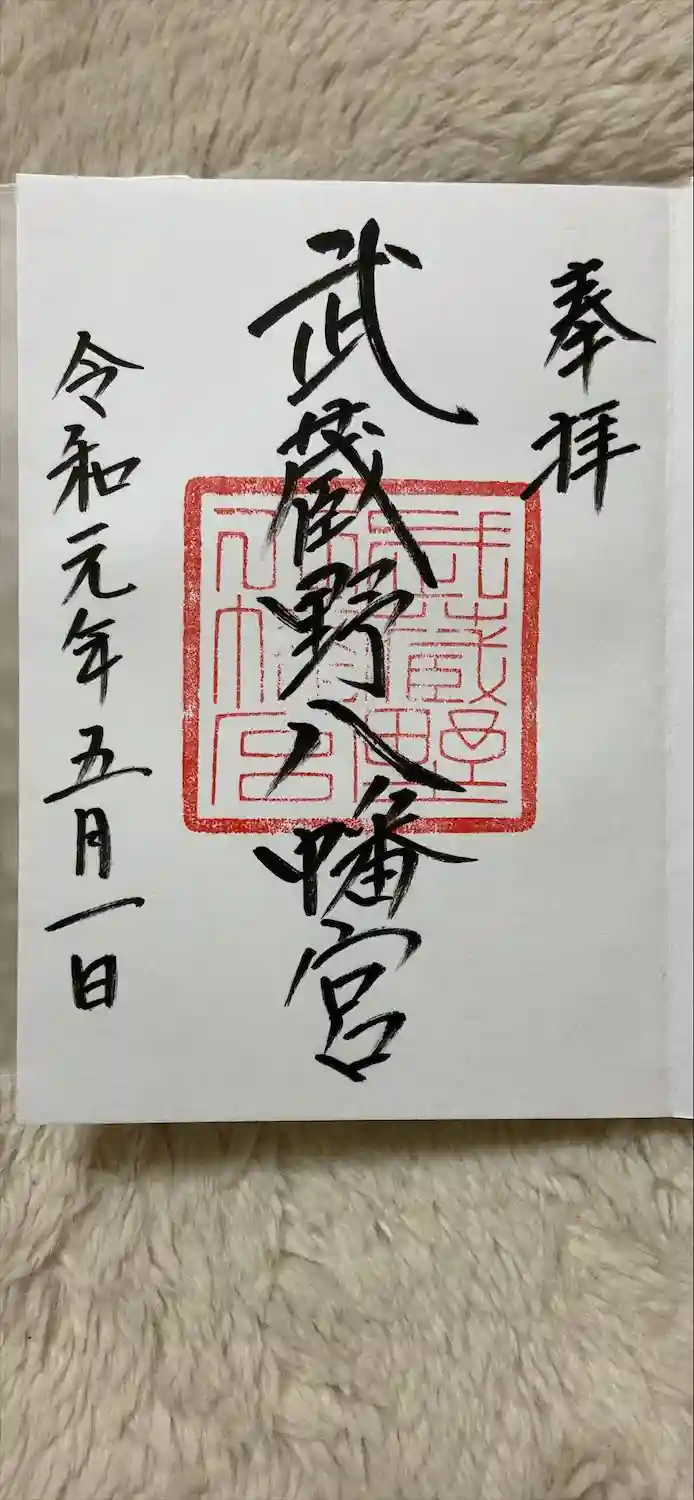 奉拝
武蔵野八幡宮
武蔵野八幡宮
令和元年五月一日